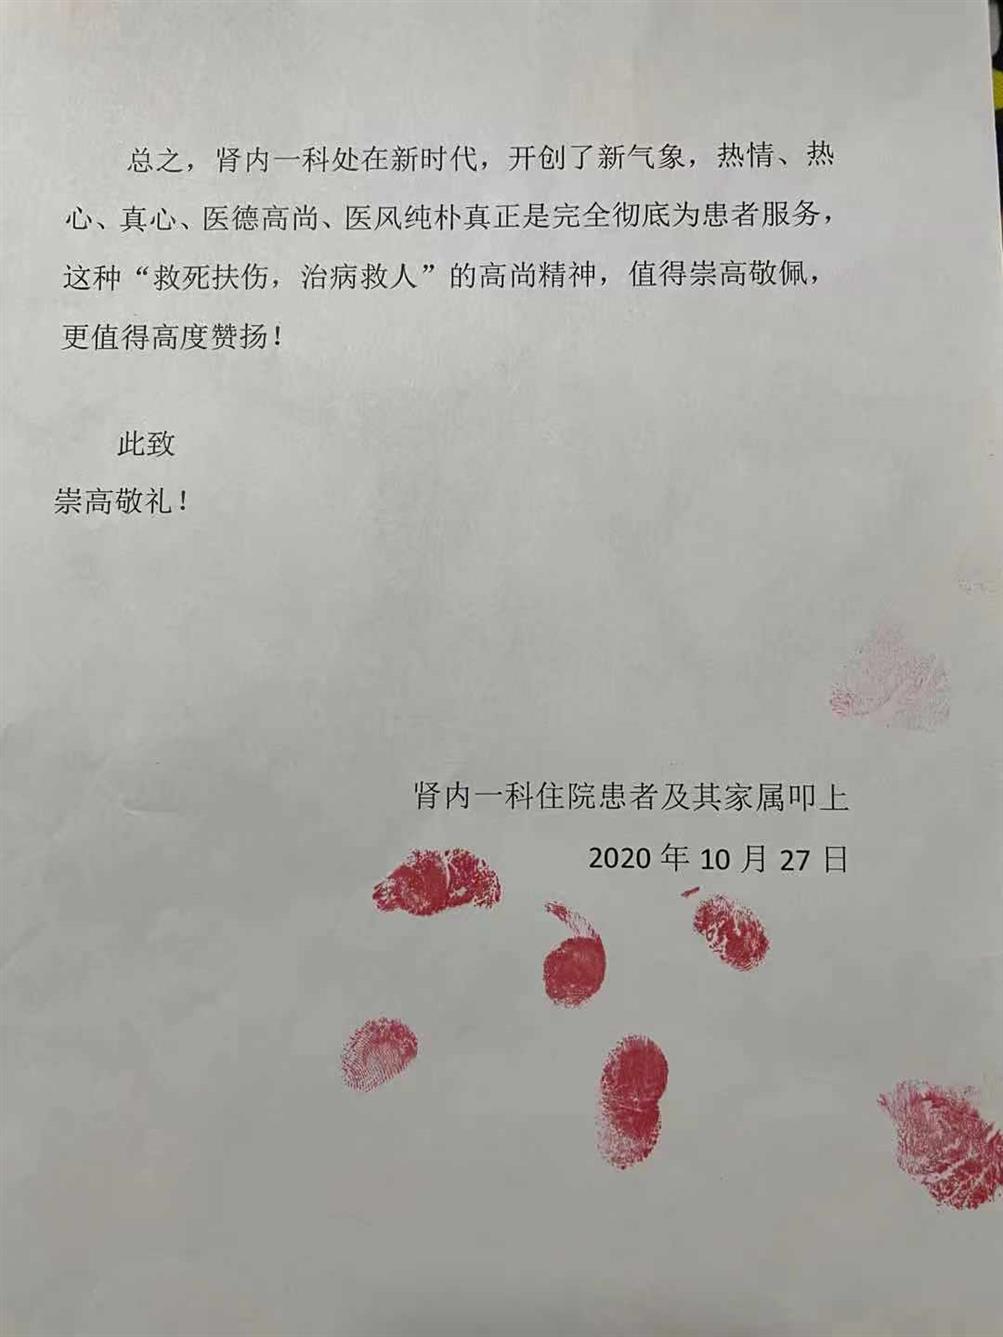 总之，肾内一科处在新时代，开创了新气象，热情、热
心、真心、医德高尚、医风纯朴真正是完全彻底为患者服务，
这种“救死扶伤，治病救人”的高尚精神，值得崇高敬佩，
更值得高度赞扬！
此致
崇高敬礼！
肾内一科住院患者及其家属叩上
2020 年 10 月 27 日